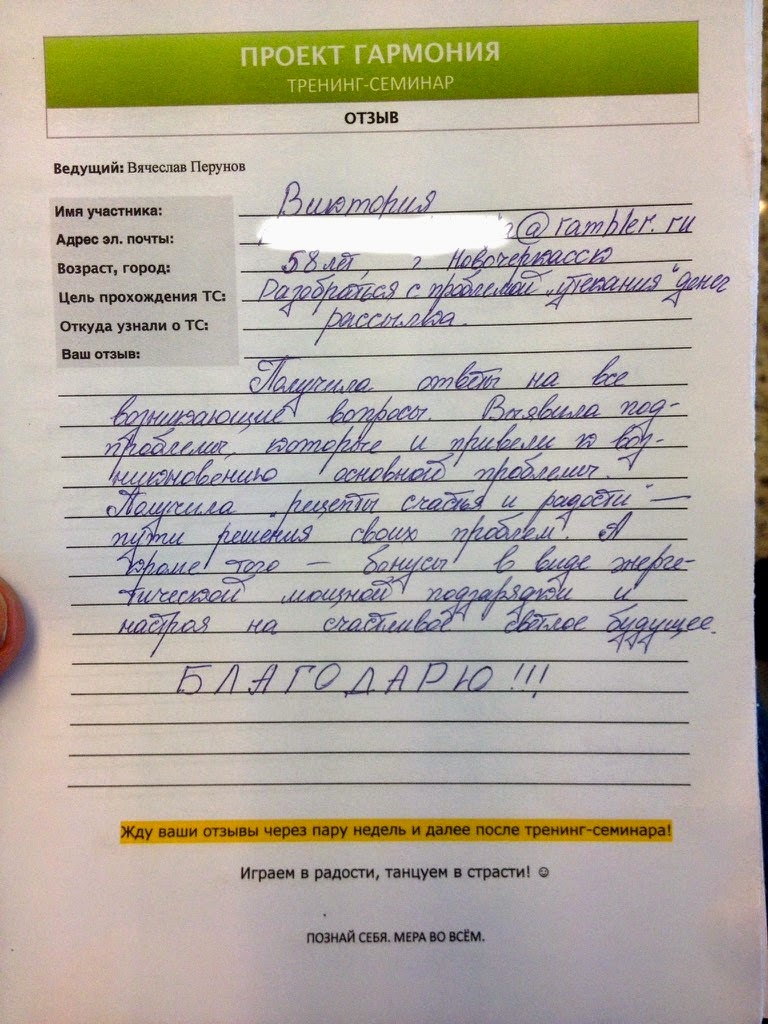 ПРОЕКТ ГАРМОНИЯ
ТРЕНИНГ-СЕМИНАР
ОТЗЫВ
Ведущий: Вячеслав Перунов
Имя участника: Виктория
Адрес эл. почты: @rambler.ru
Возраст, город: 58 лет, г Новочеркасск
Цель прохождения ТС: Разобраться с проблемой „утекания" денег
Откуда узнали о ТС: рассылка.
Ваш отзыв:
Получила ответы на все
возникающие вопросы. Выявила под-
проблемы, которые и привели к воз-
никновению основной проблемы.
Получила „рецепты счастья и радости" —
пути решения своих проблем. А
кроме того — бонусы в виде энерге-
тической мощной подзарядки и
настроя на счастливое светлое будущее.
БЛАГОДАРЮ!!!
Жду ваши отзывы через пару недель и далее после тренинг-семинара!
Играем в радости, танцуем в страсти! ☺
ПОЗНАЙ СЕБЯ. МЕРА ВО ВСЁМ.